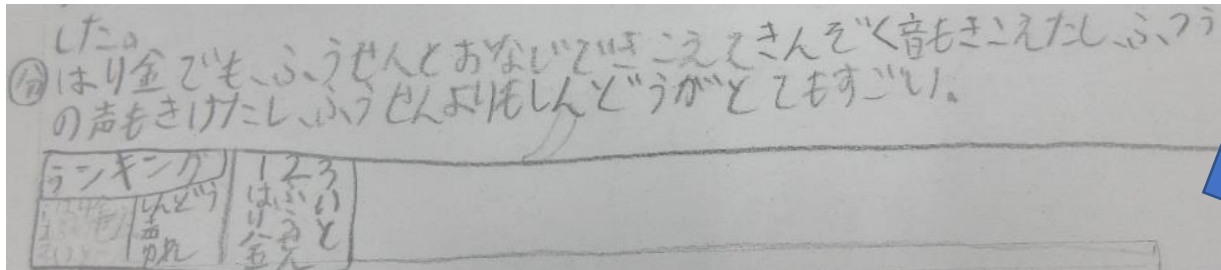 した。
分 はり金でも、ふうせんとおなじできこえてきんぞく音もきこえたし、ふつう
の声もきけたし、ふうせんよりもしんどうがとてもすごい。
ランキング
しんどう
声
ゆれ
1 2 3
はり金
ふうせん
いと